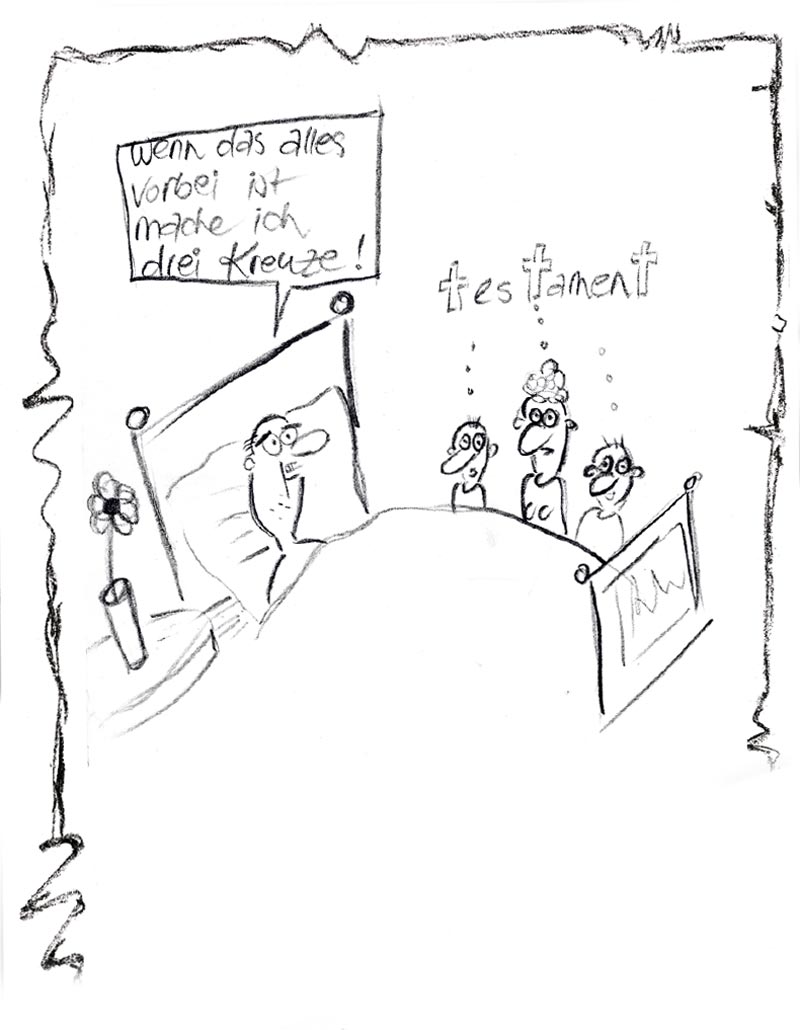 wenn das alles
vorbei ist
mache ich
drei Kreuze!
testament